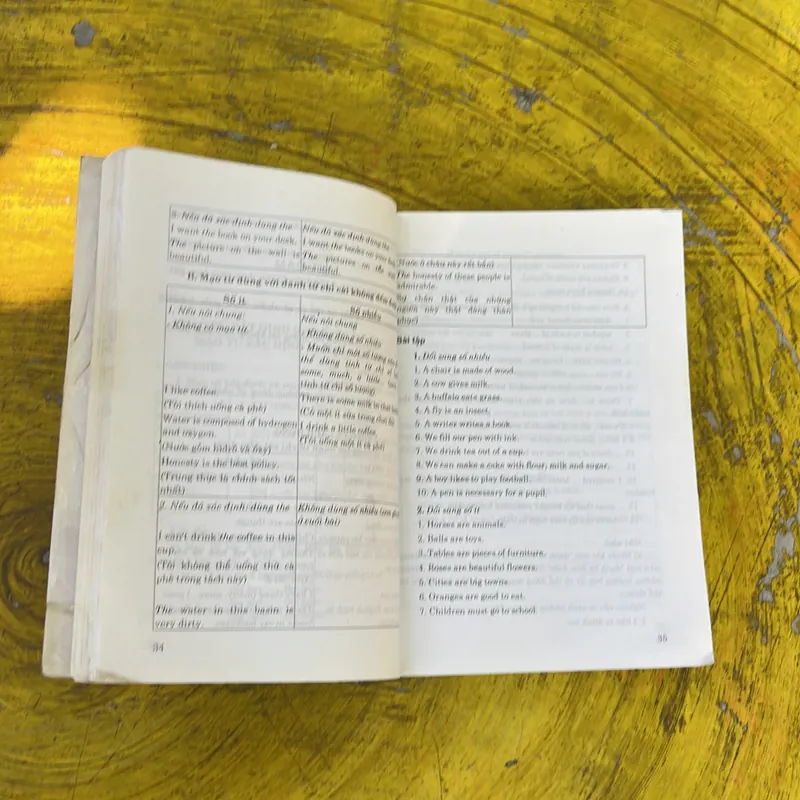 2. Nếu đã xác định dùng the
I want the book on your desk.
The picture on the wall is
beautiful.
Nếu đã xác định dùng the
I want the books on your
The pictures on the
beautiful.
B. Mạo từ dùng với danh từ chỉ cái không đếm
Số ít
Số nhiều
1. Nếu nói chung
- Không có mạo từ.
I like coffee.
(Tôi thích uống cà phê)
Water is composed of hydrogen
and oxygen.
(Nước gồm hiđrô và ôxy)
Honesty is the best policy.
(Trung thực là chính sách tốt
nhất)
Nếu nói chung
- Không dùng số nhiều
- Muốn chỉ một số lượng
thể dùng tính từ
some, much, a little
tính từ chỉ số lượng)
There is some milk in that
(Có một ít sữa trong
I drink a little coffee.
(Tôi uống một ít cà phê)
2. Nếu đã xác định: dùng the
I can't drink the coffee in this
cup.
(Tôi không thể uống thứ cà
phê trong tách này)
The water in this basin is
very dirty.
Không dùng số nhiều
ở cuối bài)
34
(Nước ở chậu này rất bẩn)
The honesty of these people is
admirable.
chân thật của những
người này thật đáng thán
phục)
Bài tập
1. Đổi sang số nhiều
1. A chair is made of wood.
2. A cow gives milk.
3. A buffalo eats grass.
4. A fly is an insect.
5. A writer writes a book.
6. We fill our pen with ink.
7. We drink tea out of a cup.
8. We can make a cake with flour, milk and sugar.
9. A boy likes to play football.
10. A pen is necessary for a pupil.
2. Đổi sang số ít
1. Horses are animals.
2. Balls are toys.
3. Tables are pieces of furniture.
4. Roses are beautiful flowers.
5. Cities are big towns.
6. Oranges are good to eat.
7. Children must go to school.
35